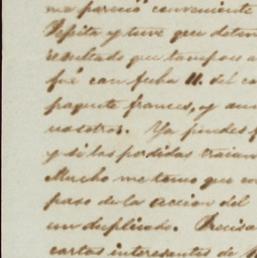 me pareció conveniente
Pepita y tuve que deten
resultado que tampoco a
fué con fecha 11. del co
paquete frances, y aun
nosotros. Ya puedes f
y si las perdidas traian
Mucho me temo que co
paso de la accion del
un duplicado. Precisa
cartas interesantes de